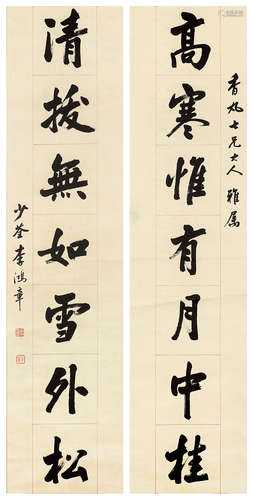 香丸七兄大人 雅属
高寒惟有月中桂
清拔無如雪外松
少荃李鴻章